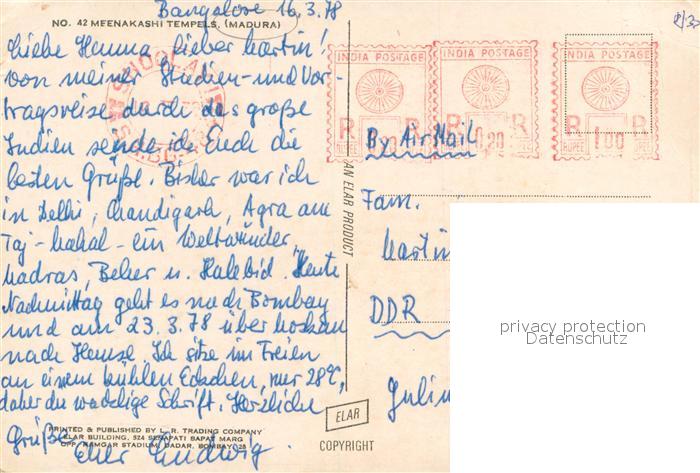 Bangalore 16.3.78
NO. 42 MEENAKASHI TEMPELS, (MADURA)
Liebe Hanna, lieber Martin!
Von meiner Studien- und Vor-
tragsreise durch das große
Indien sende ich Euch die
besten Grüße. Bisher war ich
in Delhi, Chandigarh, Agra am
Taj-Mahal - ein Weltwunder,
Madras, Belur u. Halebid. Heute
Nachmittag geht es nach Bombay
und am 23.3.78 über Moskau
nach Hause. Ich sitze im Freien
an einem kühlen Eckchen, nur 28°C,
daher die wacklige Schrift. Herzliche
Grüße
Euer Ludwig.
PRINTED & PUBLISHED BY L. R. TRADING COMPANY
ELAR BUILDING, 524 SENAPATI BAPAT MARG
OPP. RAMGAR STADIUM, DADAR, BOMBAY-28
AN ELAR PRODUCT
ELAR
COPYRIGHT
INDIA POSTAGE
INDIA POSTAGE
INDIA POSTAGE
R R
0.20
RUPEE
R R
1.00
RUPEES
By Air Mail
Fam.
Martin
DDR
privacy protection
Datenschutz